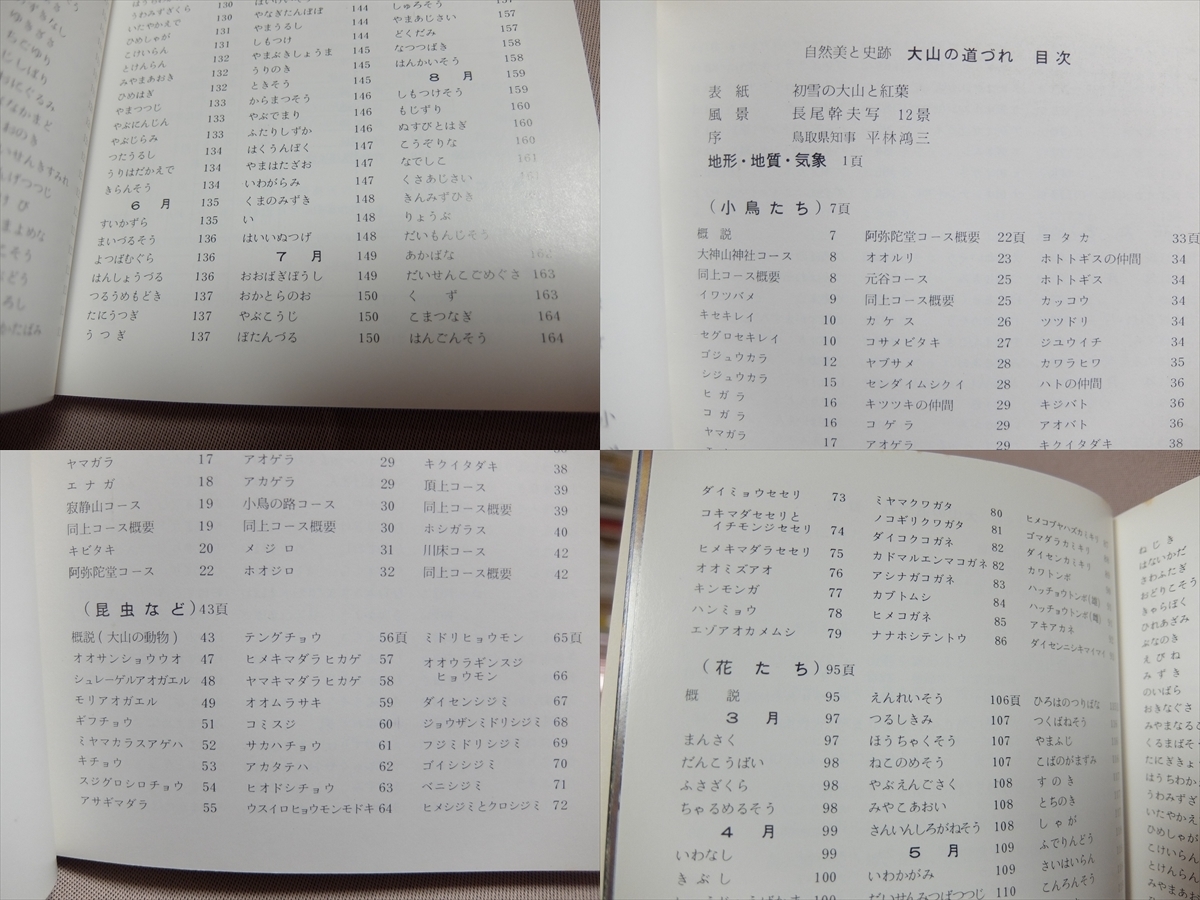 うわみずざくら 130
いたやかえで 130
ひめしゃが 131
こけいらん 131
とけんらん 131
みやまあおき 132
ひめはぎ 132
やまつつじ 132
やぶにんじん 133
やぶじらみ 133
つたうるし 133
うりはだかえで 134
きらんそう 134
6月 135
すいかずら 135
まいづるそう 136
よつばむぐら 136
はんしょうづる 136
つるうめもどき 137
たにうつぎ 137
うつぎ 137
やなぎたんぽぽ 144
やまうるし 144
しもつけ 144
やまぶきしょうま 145
うりのき 145
ときそう 145
からまつそう 146
やぶでまり 146
ふたりしずか 146
はくうんぼく 147
やまはたざお 147
いわがらみ 147
くまのみずき 148
い 148
はいいぬつげ 148
7月 149
おおばぎぼうし 149
おかとらのお 150
やぶこうじ 150
ぼたんづる 150
しゅろそう 157
やまあじさい 157
どくだみ 157
なつつばき 158
はんかいそう 158
8月 159
しもつけそう 159
もじずり 160
ぬすびとはぎ 160
こうぞりな 160
なでしこ 161
くさあじさい 161
きんみずひき
りょうぶ
だいもんじそう
あかばな
だいせんこごめぐさ 163
くず 163
こまつなぎ 164
はんごんそう 164
自然美と史跡 大山の道づれ 目次
表紙 初雪の大山と紅葉
風景 長尾幹夫写 12景
序 鳥取県知事 平林鴻三
地形・地質・気象 1頁
(小鳥たち)7頁
概説 7
大神山神社コース 8
同上コース概要 8
イワツバメ 9
キセキレイ 10
セグロセキレイ 10
ゴジュウカラ 12
シジュウカラ 15
ヒガラ 16
コガラ 16
ヤマガラ 17
阿弥陀堂コース概要 22頁
オオルリ 23
元谷コース 25
同上コース概要 25
カケス 26
コサメビタキ 27
ヤブサメ 28
センダイムシクイ 28
キツツキの仲間 29
コゲラ 29
アオゲラ 29
ヨタカ 33頁
ホトトギスの仲間 34
ホトトギス 34
カッコウ 34
ツツドリ 34
ジユウイチ 34
カワラヒワ 35
ハトの仲間 36
キジバト 36
アオバト 36
キクイタダキ 38
ヤマガラ 17
エナガ 18
寂静山コース 19
同上コース概要 19
キビタキ 20
阿弥陀堂コース 22
アオゲラ 29
アカゲラ 29
小鳥の路コース 30
同上コース概要 30
メジロ 31
ホオジロ 32
キクイタダキ 38
頂上コース 39
同上コース概要 39
ホシガラス 40
川床コース 42
同上コース概要 42
(昆虫など)43頁
概説(大山の動物) 43
オオサンショウウオ 47
シュレーゲルアオガエル 48
モリアオガエル 49
ギフチョウ 51
ミヤマカラスアゲハ 52
キチョウ 53
スジグロシロチョウ 54
アサギマダラ 55
テングチョウ 56頁
ヒメキマダラヒカゲ 57
ヤマキマダラヒカゲ 58
オオムラサキ 59
コミスジ 60
サカハチョウ 61
アカタテハ 62
ヒオドシチョウ 63
ウスイロヒョウモンモドキ 64
ミドリヒョウモン 65頁
オオウラギンスジ
ヒョウモン 66
ダイセンシジミ 67
ジョウザンミドリシジミ 68
フジミドリシジミ 69
ゴイシシジミ 70
ベニシジミ 71
ヒメシジミとクロシジミ 72
ダイミョウセセリ 73
コキマダセセリと
イチモンジセセリ 74
ヒメキマダラセセリ 75
オオミズアオ 76
キンモンガ 77
ハンミョウ 78
エゾアオカメムシ 79
ミヤマクワガタ 80
ノコギリクワガタ 81
ダイコクコガネ 82
カドマルエンマコガネ 82
アシナガコガネ 83
カブトムシ 84
ヒメコガネ 85
ナナホシテントウ 86
ヒメコブヤハズカミキリ
ゴマダラカミキリ
ダイセンカミキリ
カワトンボ
ハッチョウトンボ(雄)
ハッチョウトンボ(雌)
アキアカネ
ダイセンニシキマイマイ
(花たち)95頁
概説 95
3月 97
まんさく 97
だんこうばい 98
ふさざくら 98
ちゃるめるそう 98
4月 99
いわなし 99
きぶし 100
えんれいそう 106頁
つるしきみ 107
ほうちゃくそう 107
ねこのめそう 107
やぶえんごさく 108
みやこあおい 108
さんいんしろがねそう 108
5月 109
いわかがみ 109
だいせんみつばつつじ 110
ひろはのつりばな
つくばねそう
やまふじ
こばのがまずみ
すのき
とちのき
しゃが
ふでりんどう
さいはいらん
こんろんそう
ねじき
はないかだ
さわふたぎ
おどりこそう
きゃらぼく
ひれあざみ
ぶなのき
えびね
みずき
のいばら
おきなぐさ
みやまなるこ
くるまばそ
たにぎきょ
はうちわか
うわみずざ
いたやかえ
ひめしゃが
こけいらん
とけんらん
みやまあお